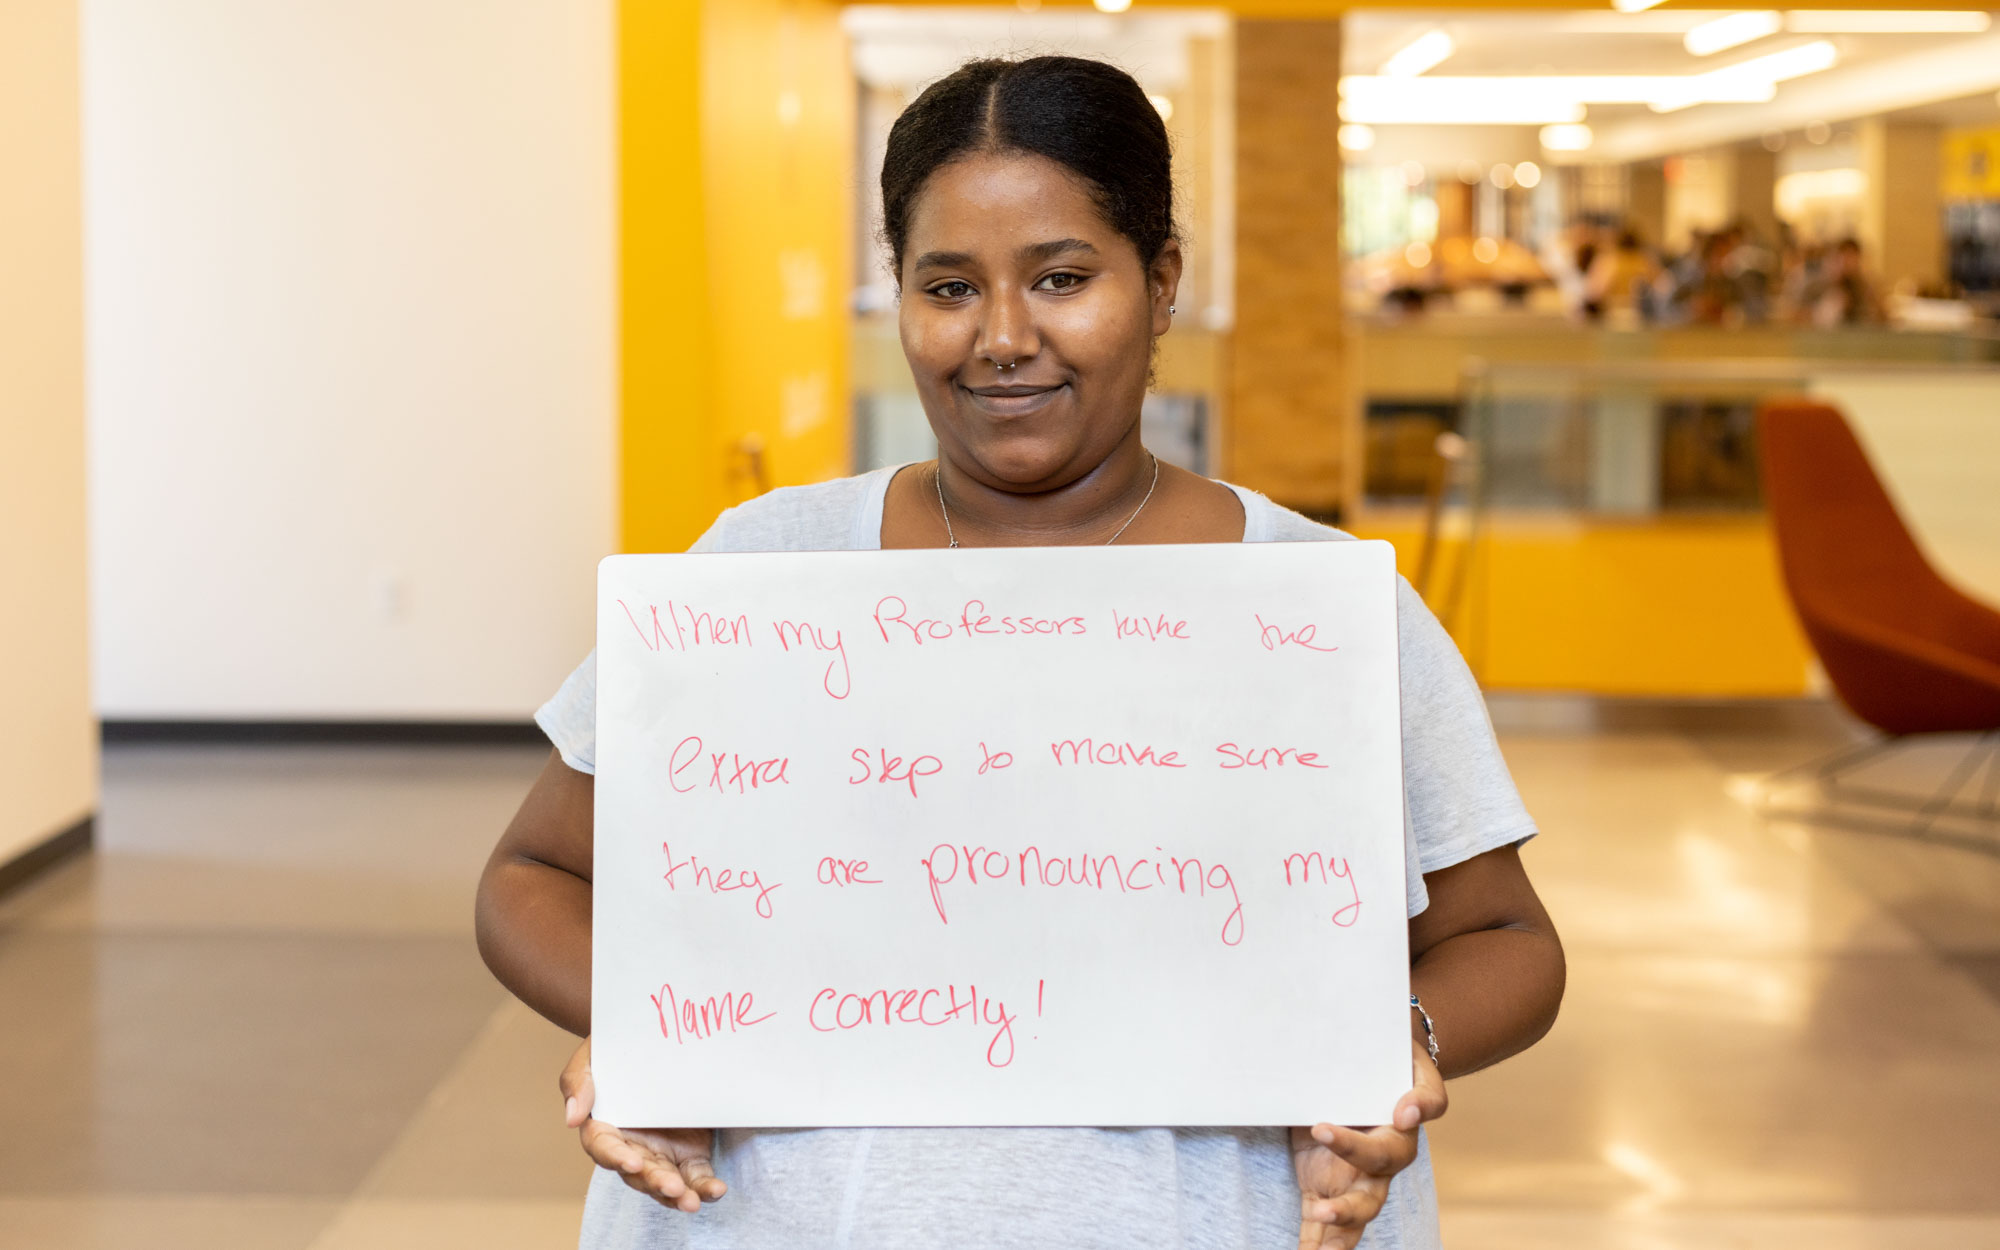 When my Professors take the
extra step to make sure
they are pronouncing my
name correctly!